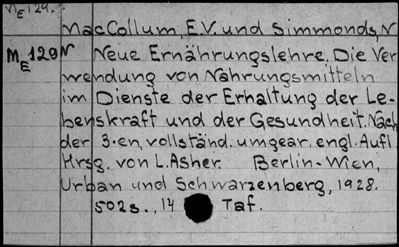 ME 129.
MacCollum, E.V. und Simmonds, N
ME 129N Neue Ernährungslehre. Die Ver
wendung von Nahrungsmitteln
im Dienste der Erhaltung der Le-
benskraft und der Gesundheit. Nach
der 3. en, vollständ. umgear. engl. Aufl
Hrsg. von L. Asher. Berlin-Wien,
Urban und Schwarzenberg, 1928.
502s., 14 Taf.